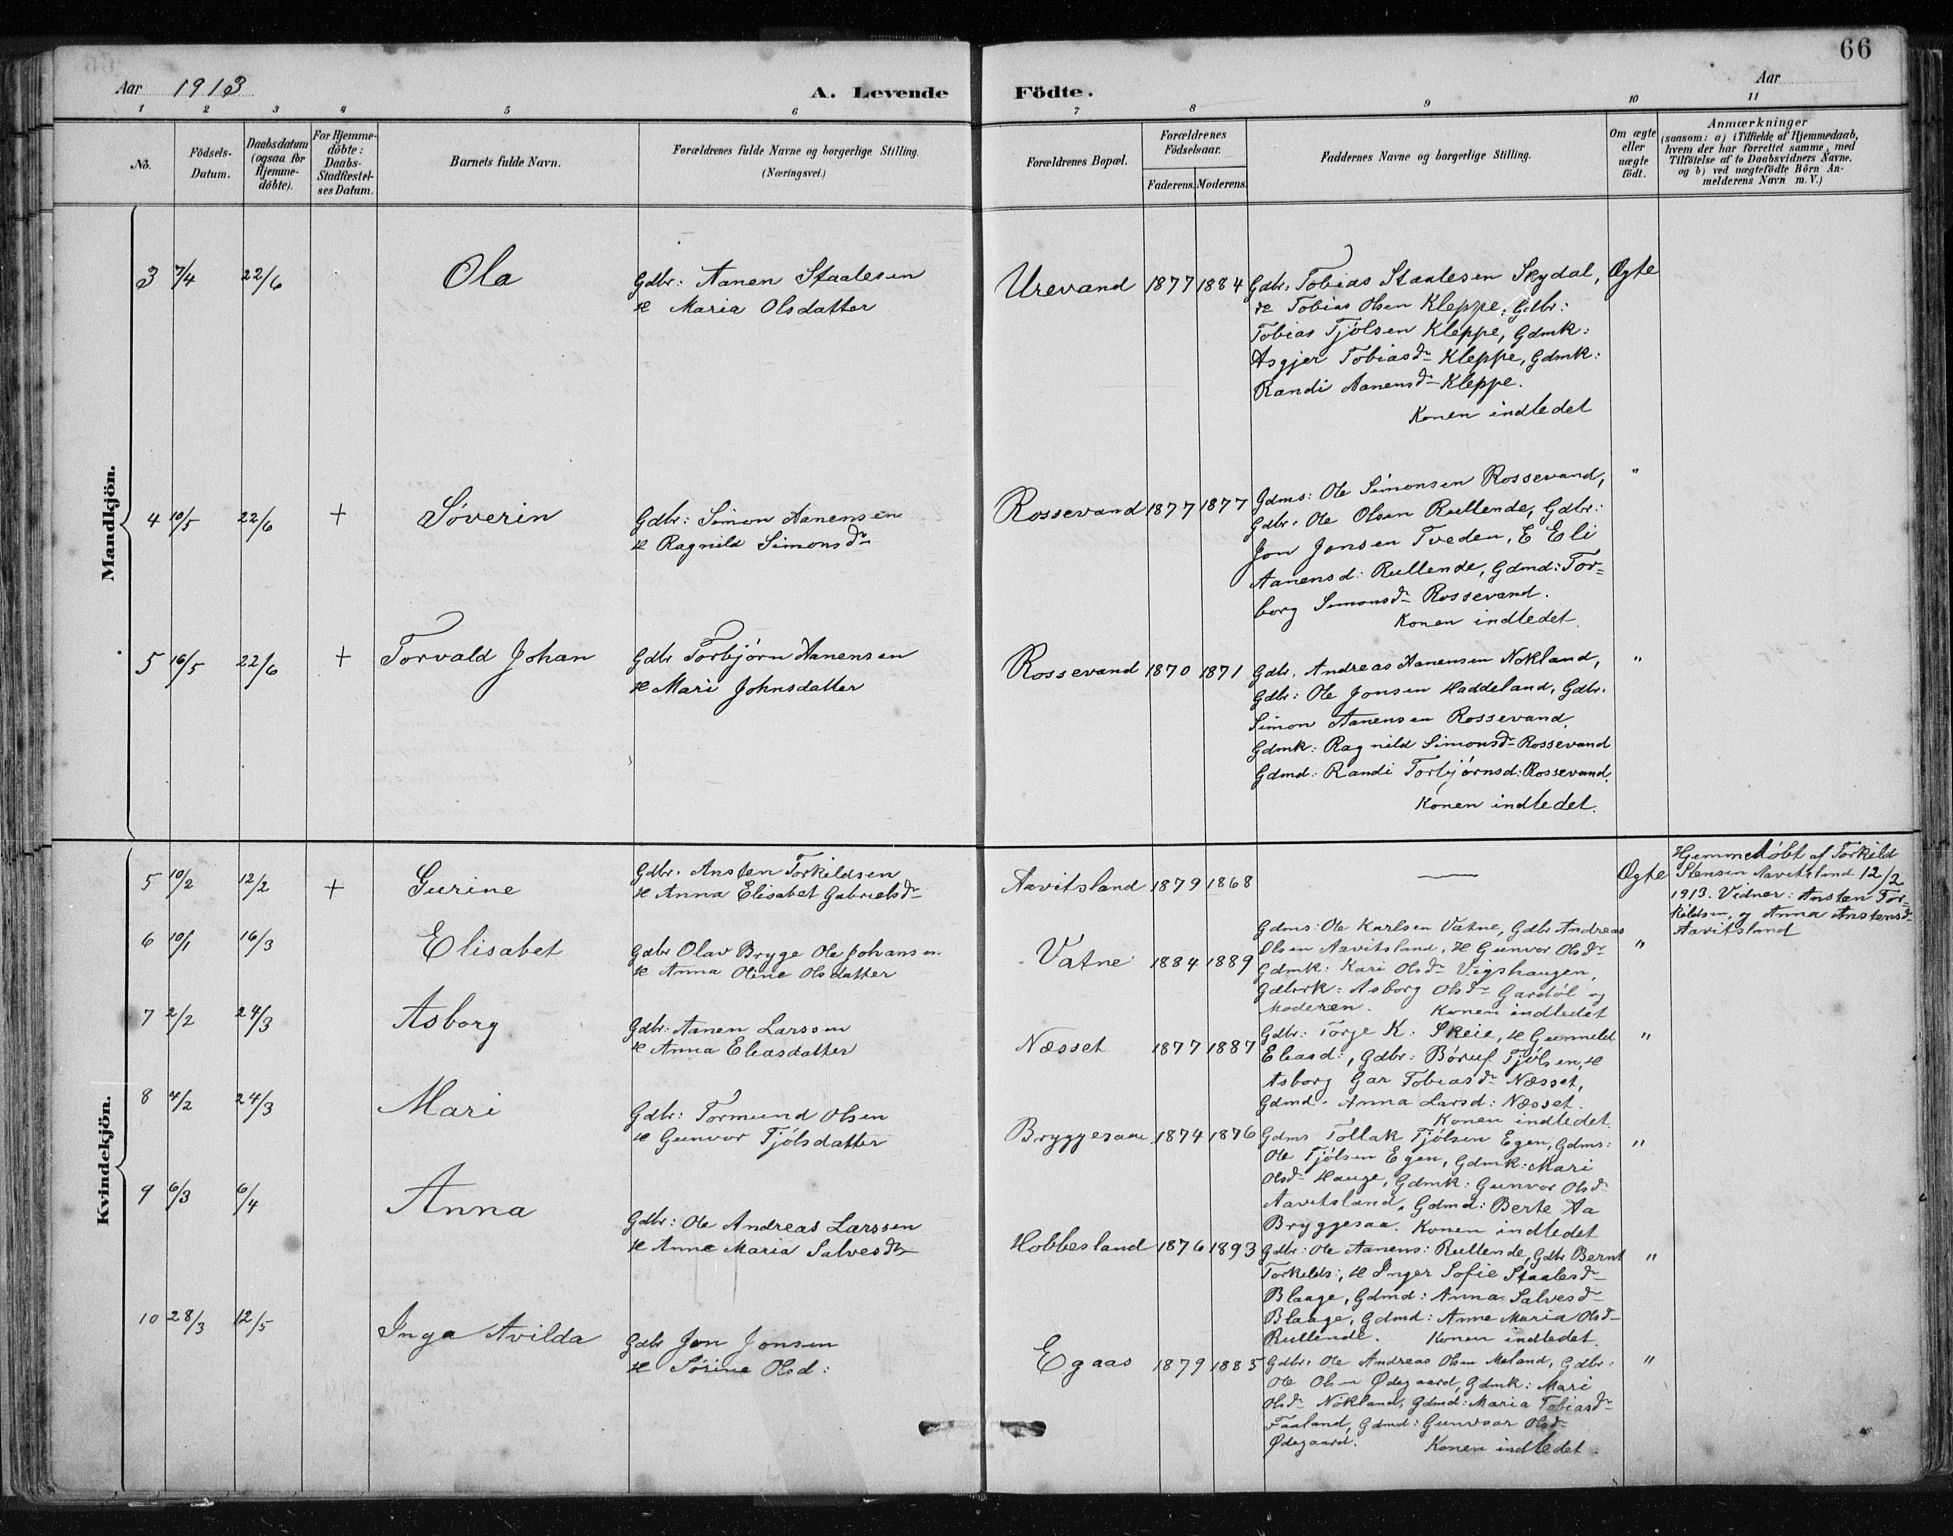 66
Aar 1913
A. Levende Födte.
Aar
1 2 3 4 5 6 7 8 9 10 11
No.
Födsels-Datum.
Daabsdatum (ogsaa for Hjemme-döbte).
For Hjemme-döbte: Daabs-Stadfæstel-ses Datum.
Barnets fulde Navn.
Forældrenes fulde Navne og borgerlige Stilling.
(Næringsvei.)
Forældrenes Bopæl.
Forældrenes Födselsaar.
Faderens. Moderens.
Faddernes Navne og borgerlige Stilling.
Om ægte eller uægte födt.
Anmærkninger
(saasom: a) i Tilfælde af Hjemmedaab,
hvem der har forrettet samme, med
Tilföielse af to Daabsvidners Navne.
og b) ved uægtefödte Börn An-
melderens Navn m.V.)
Mandkjön.
3 7/4 22/6 Ola
Gdbr: Aanen Staalesen
H Maria Olsdatter
Urevand 1877 1884
Gdbr. Tobias Staalesen Skydal,
Tobias Olsen Kleppe, Gdbr:
Tobias Tjölsen Kleppe, Gdmk:
Asgjer Tobiasdr Kleppe, Gdmk:
Randi Aanensdr Kleppe.
Konen indledet
Ægte
4 10/5 22/6 + Søverin
Gdbr: Simon Aanensen
H Ragnild Simonsdr
Rossevand 1877 1877
Gdms: Ole Simonsen Rossevand,
Gdbr. Ole Olsen Rullende, Gdbr:
Jon Jonsen Tveden, E Eli
Aanensd: Rullende, Gdmd: Tor=
borg Simonsdr Rossevand.
Konen indledet.
"
5 16/5 22/6 + Torvald Johan
Gdbr Torbjørn Aanensen
H Mari Johnsdatter
Rossevand 1870 1871
Gdbr. Andreas Aanensen Nokland,
Gdbr: Ole Jonsen Haddeland, Gdbr.
Simon Aanensen Rossevand,
Gdmk: Ragnild Simonsdr Rossevand
Gdmd: Randi Torbjørnsd: Rossevand.
Konen indledet.
"
Kvindekjön.
5 10/2 12/2 + Gurine
Gdbr. Ansten Torkildsen
H Anna Elisabet Gabrielsdr
Aavitsland 1879 1868
—
Ægte
Hjemmedøbt af Torkild
Stensen Aavitsland 12/2
1913. Vidner: Ansten Tor-
kildsen, og Anna Anstensdr
Aavitsland
6 10/1 16/3 Elisabet
Gdbr Olav Brygge Ole Johansen
H Anna Oline Olsdatter
Vatne 1884 1889
Gdms: Ole Karlsen Vatne, Gdbr Andreas
Olsen Aavitsland, H Gunvor Olsdr
Gdmk: Kari Olsdr Vigshaugen,
Gdbrk: Asborg Olsdr Gardöl og
Moderen. Konen indledet
"
7 2/2 24/3 Asborg
Gdbr: Aanen Larssen
H Anna Eleasdatter
Næsset 1877 1887
Gdbr: Torje K. Skeie, H Gunneld
Eleasd:, Gdbr: Böruf Tjölsen, H
Asborg Gar Tobiasdr Næsset,
Gdmd. Anna Larsd: Næsset.
Konen indledet.
"
8 4/2 24/3 Mari
Gdbr: Tormund Olsen
H Gunvor Tjölsdatter
Bryggesaa 1874 1876
Gdms Tollak Tjölsen Egen, Gdms:
Ole Tjölsen Egen, Gdmk: Mari
Olsdr Hauge, Gdmk: Gunvor Olsdr
Aavitsland, Gdmd: Berte Aa
Bryggesaa. Konen indledet
"
9 6/3 6/4 Anna
Gdbr: Ole Andreas Larssen
H Anne Maria Salvesdr
Hobbesland 1876 1893
Gdbr: Ole Aanens: Rullende, Gdbr Bernt
Torkilds:, H Inger Sofie Staalesdr
Blaage, Gdmd: Anna Salvesdr
Blaage, Gdmd: Anne Maria Olsdr
Rullende. Konen indledet.
"
10 28/3 12/5 Inga Avilda
Gdbr Jon Jonsen
H Sörine Olsd:
Egaas 1879 1885
Gdbr. Ole Andreas Olsen Meland, Gdbr:
Ole Olsen Ødegaard, Gdmk: Mari
Olsdr Nökland, Gdmd: Maria Tobiasdr
Faaland, Gdmd: Gunvor Olsdr
Ødegaard. Konen indledet.
"